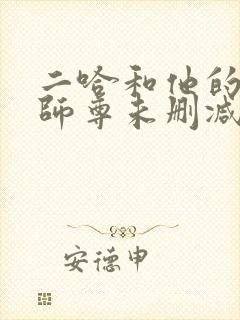 二哈和他的
师尊未删减
安德申